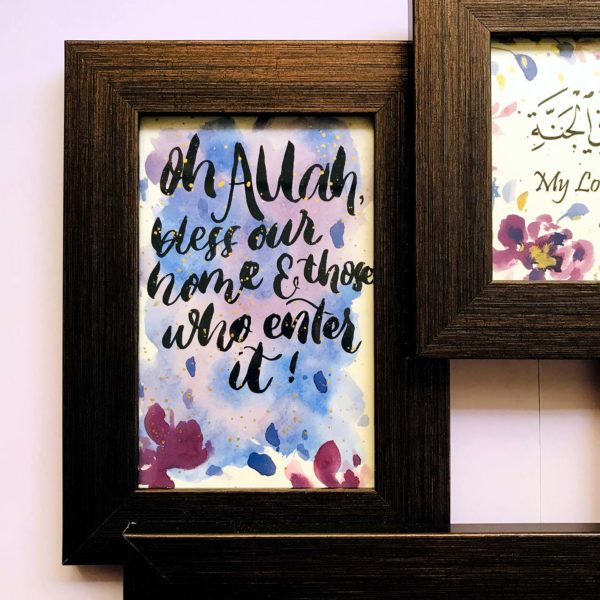 oh Allah,
bless our
home & those
who enter
it!
الجَنَّةِ
My